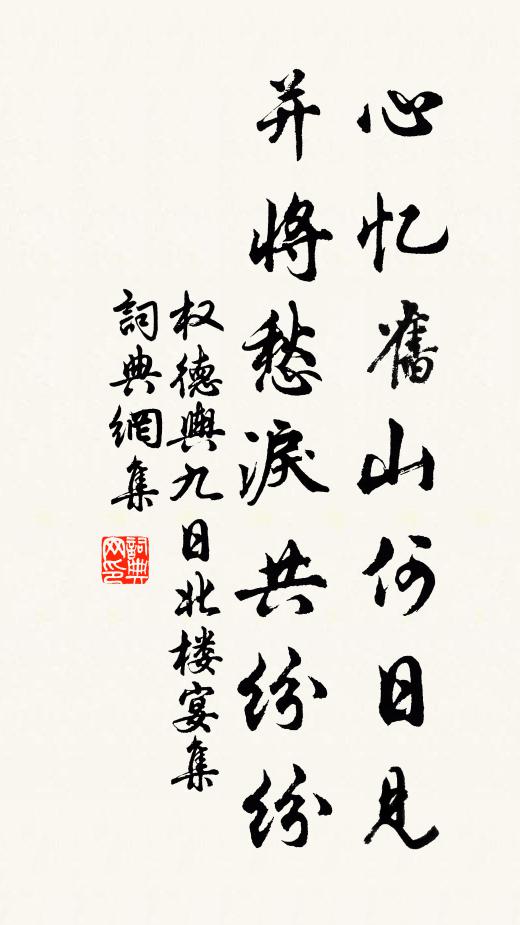 心忆舊山何日見
并將愁淚共纷纷
权德輿九日北楼宴集
詞典網集
詞典网印